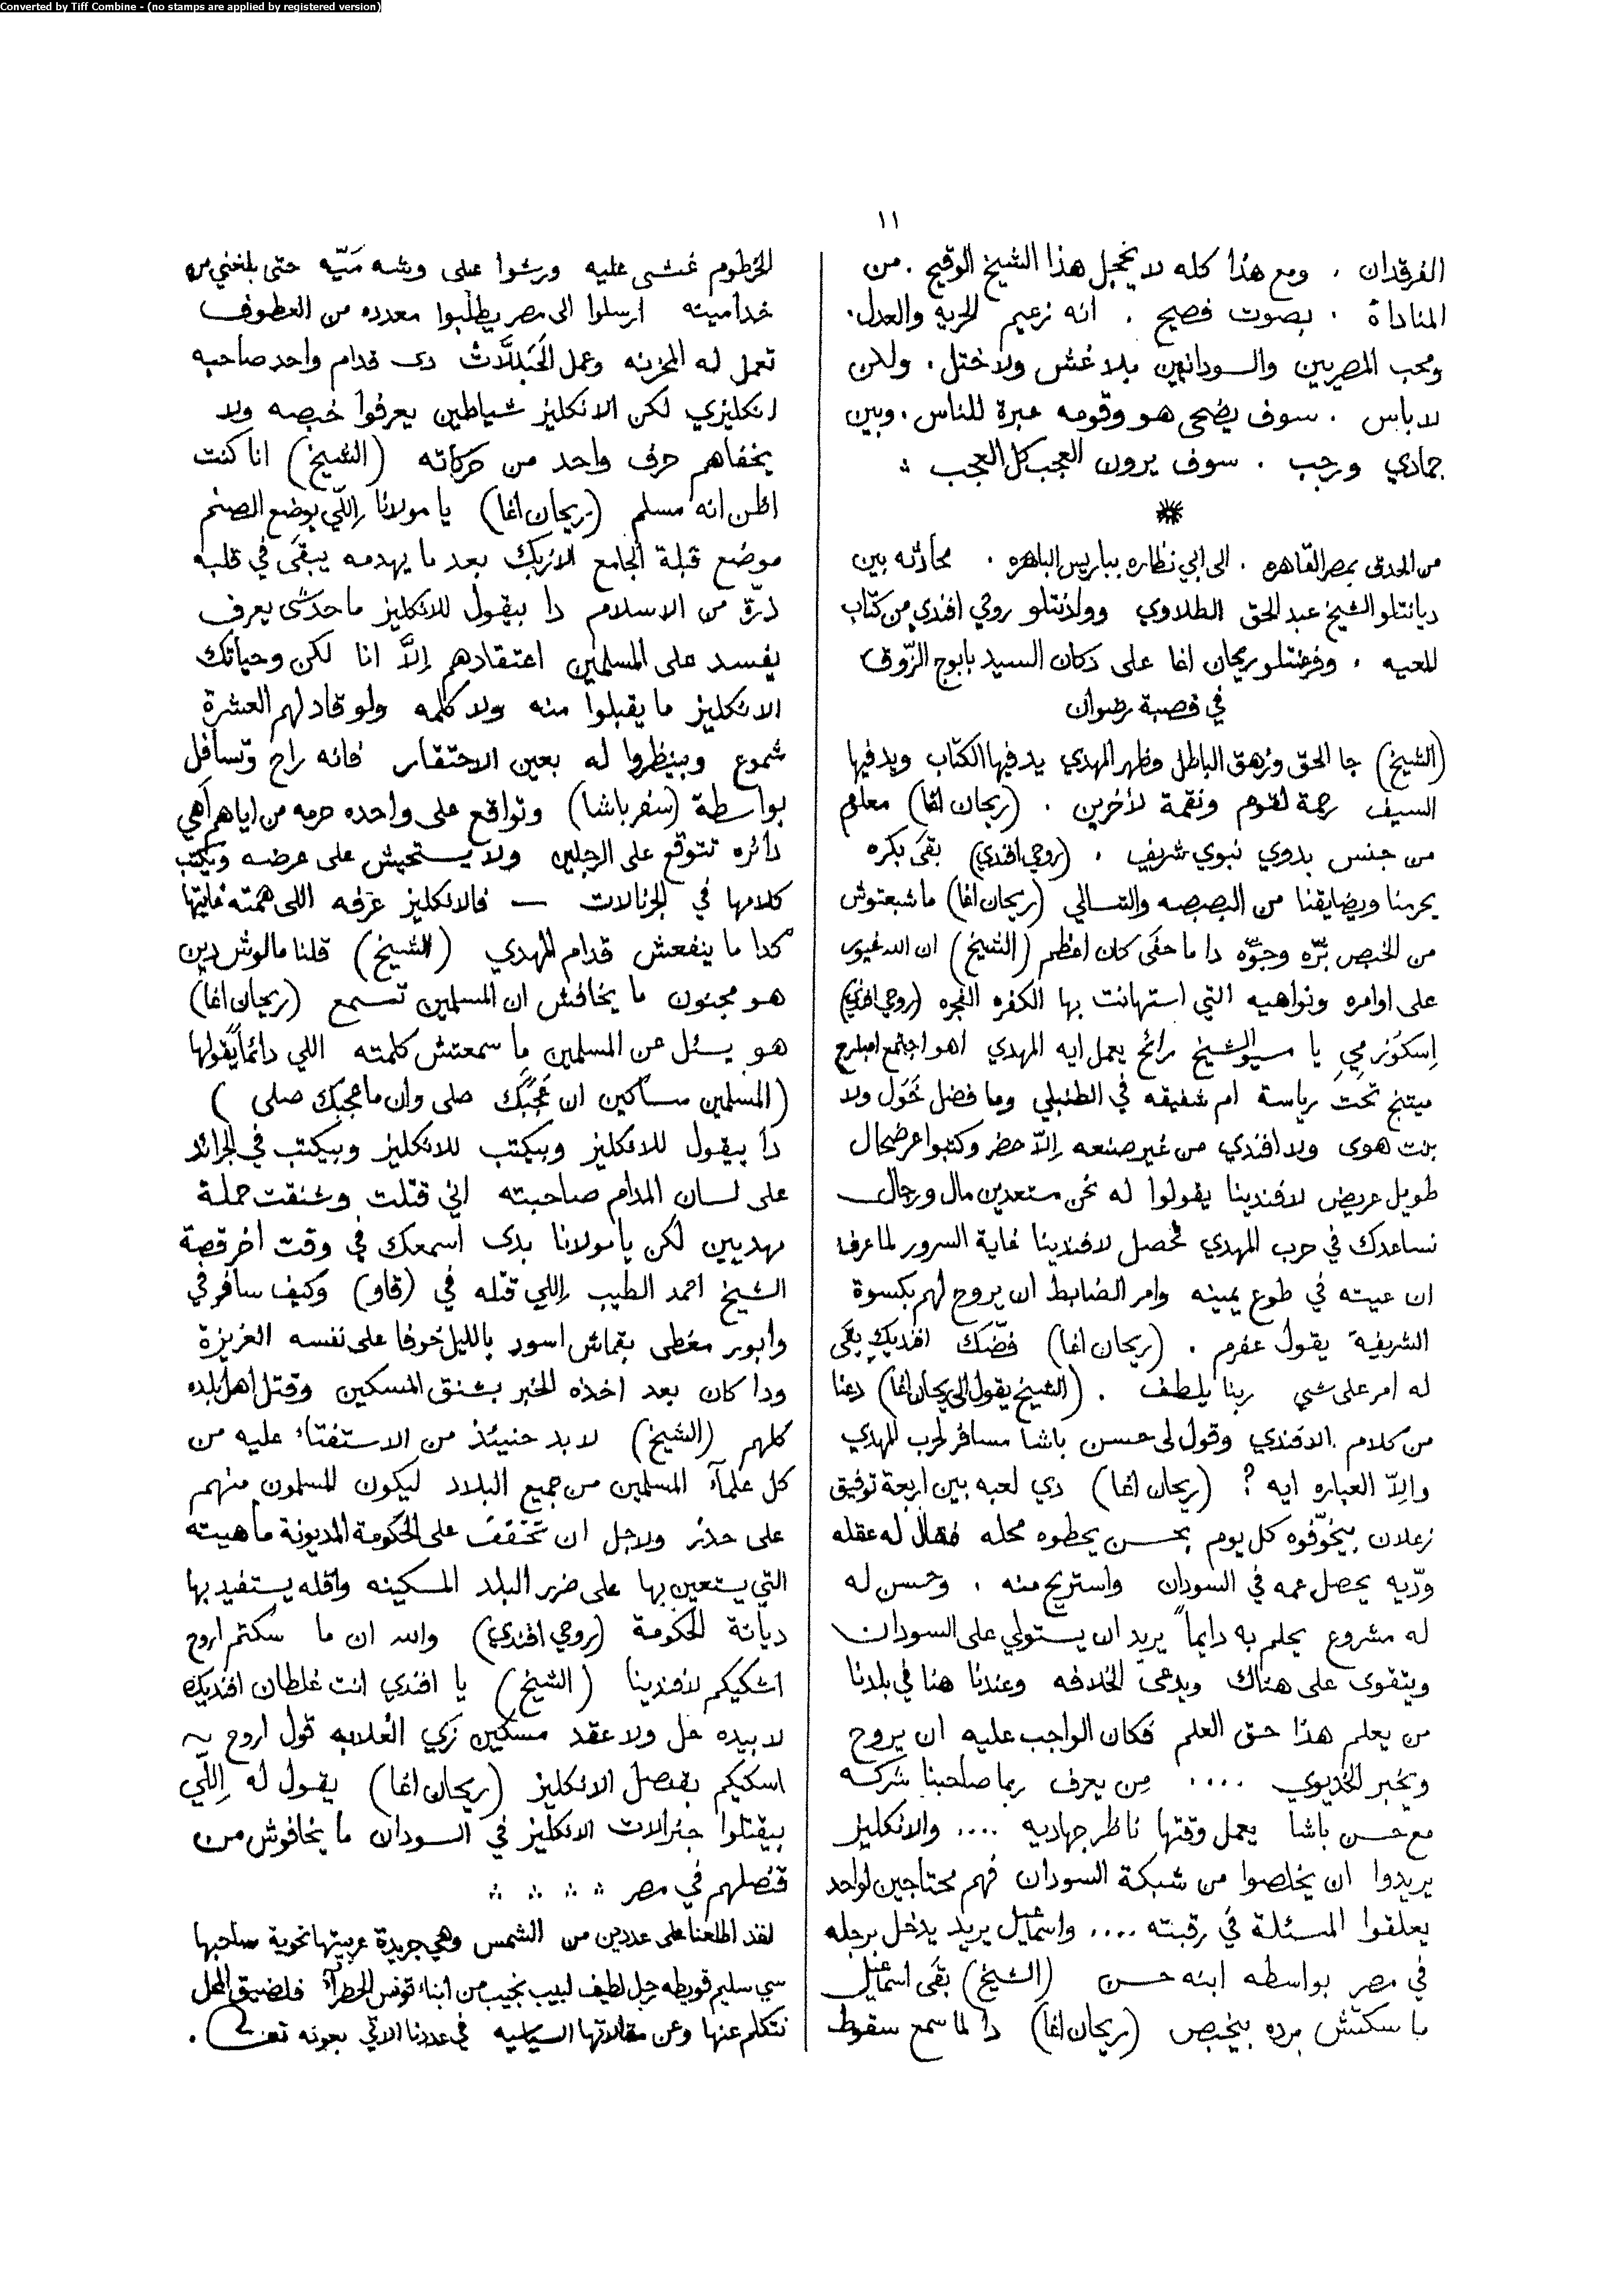 Converted by Tiff Combine - (no stamps are applied by registered version)
١١
الفرقدان . ومع هذا كله لا يخجل هذا الشيخ الوقيح . من
المناداة . بصوت فصيح . انه زعيم الحريه والعدل .
ومحب المصريين والسودانيين بلا غش ولا ختل . ولكن
لا باس . سوف يضحى هو وقومه عبرة للناس . وبين
جمادي ورجب . سوف يرون العجب كل العجب
من الحدق بمصر القاهره . الى ابي نظاره بباريس الباهره . محادثه بين
ديانتلو الشيخ عبد الحق الطلاوي وولدنتلو روحي افندي من كتّاب
المعيه . وفرضتلو ريحان اغا على دكان السيد بابوج الزّوق
في قصبة رضوان
(الشيخ) جا الحق وزهق الباطل وظهر المهدي يد فيها الكتاب ويد فيها
السيف رحمة لقوم ونقمة لأخرين . (ريحان اغا) معلوم
من جنس بدوي نبوي شريف . (روحي افندي) بقى بكره
يحرمنا ويضايقنا من البصبصه والتسالي (ريحان اغا) ما شبعتوش
من الخبص برّه وجوّه دا ما حفى كان اعظم (الشيخ) ان الله غيور
على اوامره ونواهيه التي استهانت بها الكفره الفجره (روحي افندي)
إسكوزمي يا مسيو الشيخ رائح يعمل ايه المهدي اهو اجتمع امبارح
ميتنج تحت رياسة ام شفيقه في الطنبلي وما فضل خَوَل ولا
بنت هوى ولا افندي من غير صنعه إلاّ حضر وكتبوا عرضحال
طويل عريض لافندينا يقولوا له نحن مستعدين مال ورجال
نساعدك في حرب المهدي فحصل لافندينا غاية السرور لما عرف
ان عيته في طوع يمينه وامر الضابط ان يروح لهم بكسوة
الشريفة يقول عفرم . (ريحان اغا) فضّك افنديك بقى
له امر على شي ربنا يلطف . (الشيخ يقول الى ريحان اغا) دعنا
من كلام الافندي وقول لى حسن باشا مسافر لحرب المهدي
والاّ العباره ايه ? (ريحان اغا) دي لعبه بين اربعة توفيق
زعلان بيخوّفوه كل يوم بحسن يحطوه محله فقال له عقله
ودّيه يحصل عمه في السودان واستريح منه . وحسن له
له مشروع يحلم به دايماً يريد ان يستولي على السودان
ويتقوى على هناك ويدعى الخلافه وعندنا هنا في بلدنا
من يعلم هذا حق العلم فكان الواجب عليه ان يروح
ويخبر الخديوي .... مِن يعرف ربما صاحبنا شركه
مع حسن باشا يعمل وقتها ناظر جهاديه .... والانكليز
يريدوا ان يخلصوا من شبكة السودان فهم محتاجين لواحد
يعلقوا المسئلة في رقبته .... واسماعيل يريد يدخل برجله
في مصر بواسطه ابنه حسن (الشيخ) بقى اسماعيل
ما سكتش برده بيخبص (ريحان اغا) دا لما سمع سقوط
الخرطوم غشى عليه ورشوا على وشه مَيّه حتى بلغني من
خداميته ارسلوا الى مصر يطلبوا معدده من العطوف
تعمل له المحزنه وعمل الحَبَللات دى قدام واحد صاحبه
انكليزي لكن الانكليز شياطين يعرفوا خبصه ولا
يخفاهم حرف واحد من حركاته (الشيخ) انا كنت
اظن انه مسلم (ريحان اغا) يا مولانا إللّي يوضع الصنم
موضع قبلة الجامع الازبك بعد ما يهدمه يبقى في قلبه
ذرّة من الاسلام دا بيقول للانكليز ما حدّش يعرف
يفسد على المسلمين اعتقادهم إلاّ انا لكن وحياتك
الانكليز ما يقبلوا منه ولا كلمه ولو قاد لهم العشرة
شموع وبينظروا له بعين الاحتقار فانه راح وتسافل
بواسطة (سنفر باشا) وتواقع على واحده حرمه من اياهم أهي
دائره تتوقع على الرجلين ولا يستحيش على عرضه ويكتب
كلامها في الجرنالات — فالانكليز عرفه اللى همته غايتها
كدا ما ينفعش قدام المهدي (الشيخ) قلنا مالوش دين
هو مجنون ما يخافش ان المسلمين تسمع (ريحان اغا)
هو يسئل عن المسلمين ما سمعتش كلمته اللي دائماً يقولها
(المسلمين مساكين ان عَجَبَك صلى وان ما عجبك صلى)
دا بيقول للانكليز وبيكتب للانكليز وبيكتب في الجرائد
على لسان المدام صاحبته اني قتلت وشنقت جملة
مهديين لكن يا مولانا بدى اسمعك في وقت اخر قصة
الشيخ احمد الطيب إللي قتله في (قاو) وكيف سافر في
وابور مغطى بقماش اسود بالليل خوفا على نفسه العزيزة
ودا كان بعد اخذه الخبر بشنق المسكين وقتل اهل بلده
كلهم (الشيخ) لا بد حنيئذ من الاستفتاء عليه من
كل علمآء المسلمين من جميع البلاد ليكون المسلمون منهم
على حذر ولاجل ان تخفف على الحكومة المديونة ماهيته
التي يستعين بها على ضرر البلد المسكينه واقله يستفيد بها
ديانة الحكومة (روحي افندي) والله ان ما سكتم اروح
اشكيكم لافندينا (الشيخ) يا افندي انت غلطان افنديك
لا بيده حل ولا عقد مسكين زي الغلابه قول اروح
اسكيكم بقنصل الانكليز (ريحان اغا) يقول له إللّي
بيقتلوا جنرالات الانكليز في السودان ما يخافوش من
قنصلهم في مصر
لقد اطلعنا على عددين من الشمس وهي جريدة عربيتها نحوية صاحبها
سي سليم قويطه رجل لطيف لبيب نجيب من ابناء تونس الخطرآء فلضيق المحل
نتكلم عنها وعن مقالاتها السياسيه في عددنا الاتي بعونه تعالى .